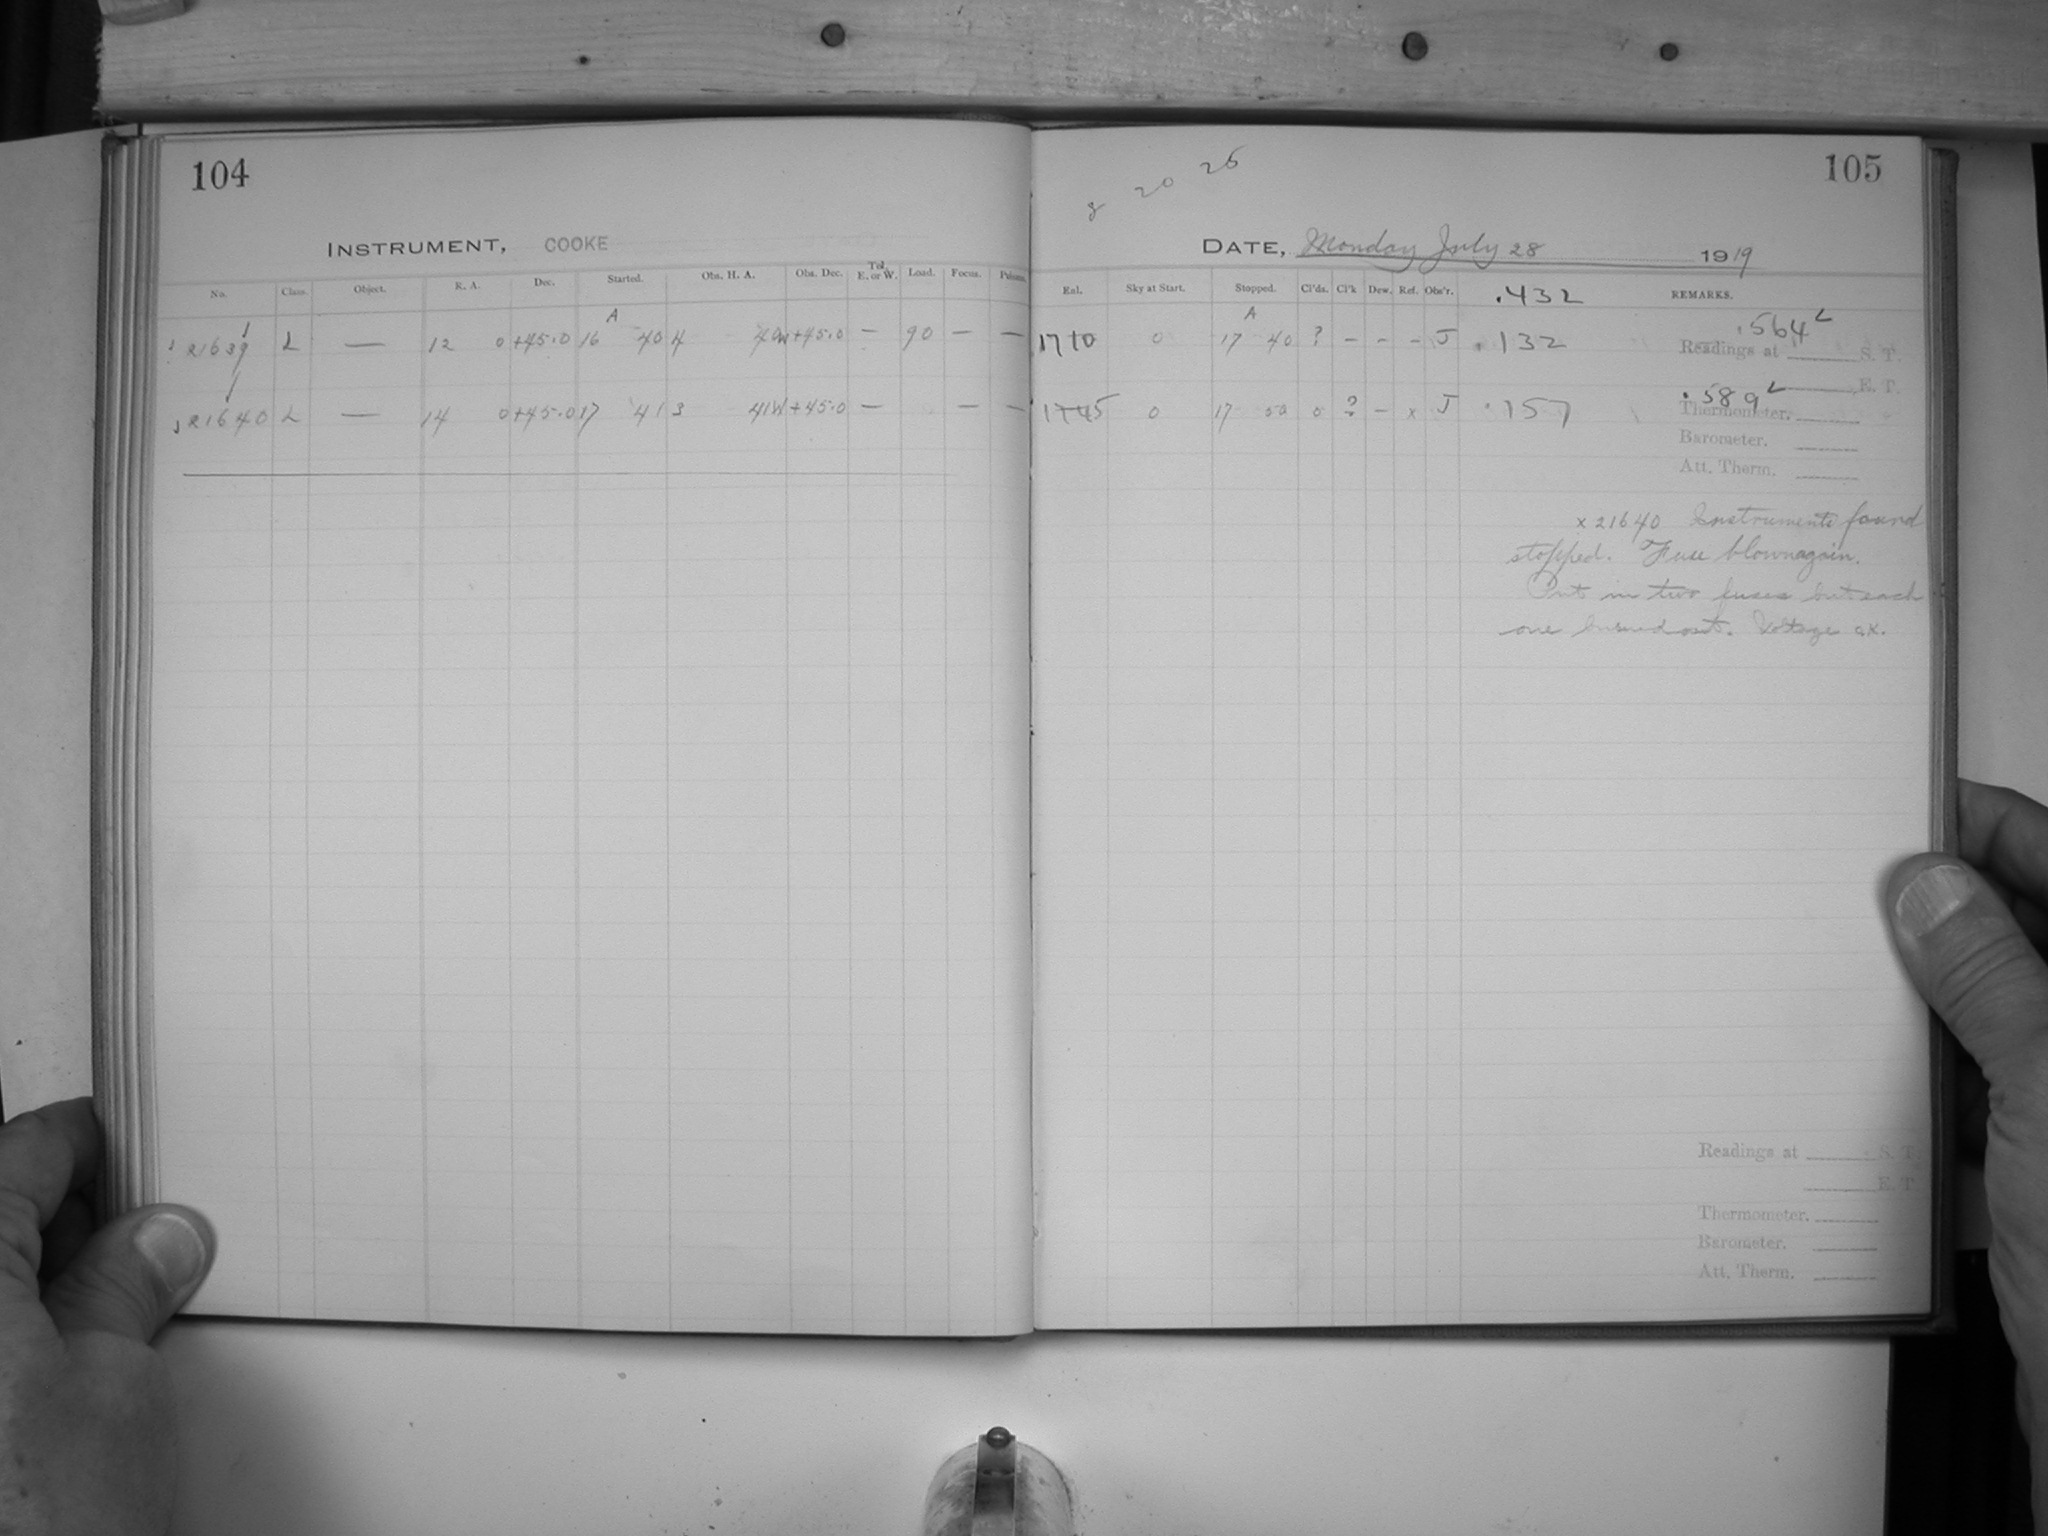 104
INSTRUMENT, COOKE
No. Class. Object. R. A. Dec. Started. Obs. H. A. Obs. Dec. Tel. E. or W. Load. Focus.
A
21639 L — 12 0 +45.0 16 40 4 40W +45.0 — 90 — —
21640 L — 14 0 +45.0 17 41 3 41W +45.0 — — —
8 20 26
105
DATE, Monday July 28 1919
Exl. Sky at Start. Stopped. Cl'ds. Cl'k Dew. Ref. Obs'r. .432 REMARKS.
A
1710 0 17 40 ? – – – J .132 .564 L
Readings at S. T.
E. T.
1745 0 17 50 0 ? – x J .157 .589 L
Thermometer.
Barometer.
Att. Therm.
x 21640 Instruments found
stopped. Fuse blown again.
Put in two fuses but each
one burned out. Voltage o.k.
Readings at S. T.
E. T.
Thermometer.
Barometer.
Att. Therm.